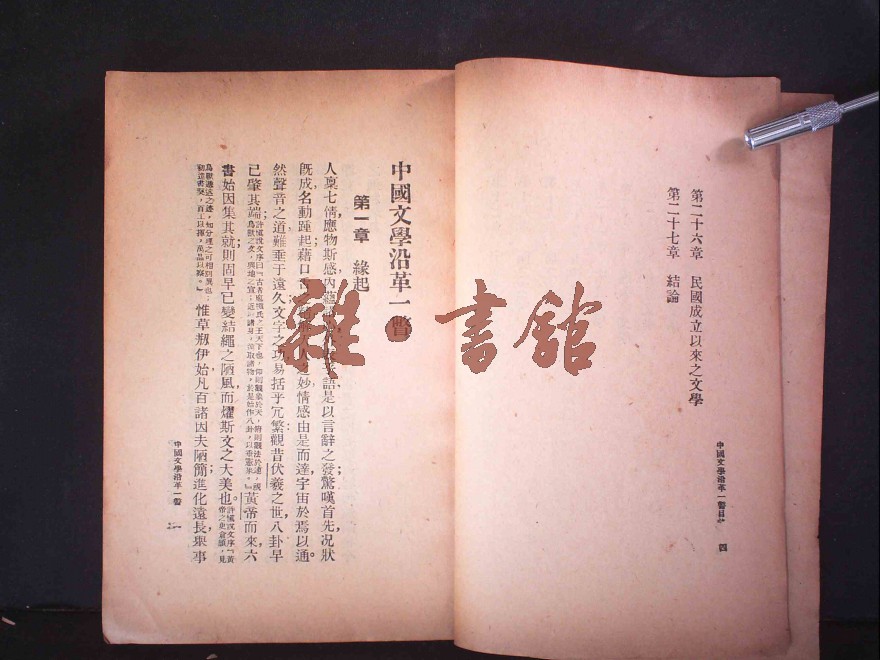 第二十六章　民國成立以來之文學
第二十七章　結論
中國文學沿革一瞥目次　四
中國文學沿革一瞥
第一章　緣起
人稟七情，應物斯感，內
語，是以言辭之發，驚嘆首先，况狀
既成，名動踵起，藉口
之妙，情感由是而達，宇宙於焉以通。
然聲音之道，難垂于遠久；文字之功，易括乎冗繁。觀昔伏羲之世，八卦早
已肇其端；
許愼說文序曰「古者庖犧氏之王天下也，仰則觀象於天，俯則觀法於地，視
鳥獸之文，與地之宜；近取諸身，遠取諸物，於是始作八卦，以垂憲象。」
黃帝而來，六
書始因集其就。則固早已變結繩之陋風，而燿斯文之大美也。
許愼說文序「黃
帝之史倉頡，見
鳥獸蹏迒之迹，知分理之可相別異也；
初造書契，百工以揆，萬品以察。」
惟草剏伊始，凡百諸因夫陋簡；進化遠長，衆事
中國文學沿革一瞥　一
雜·書館